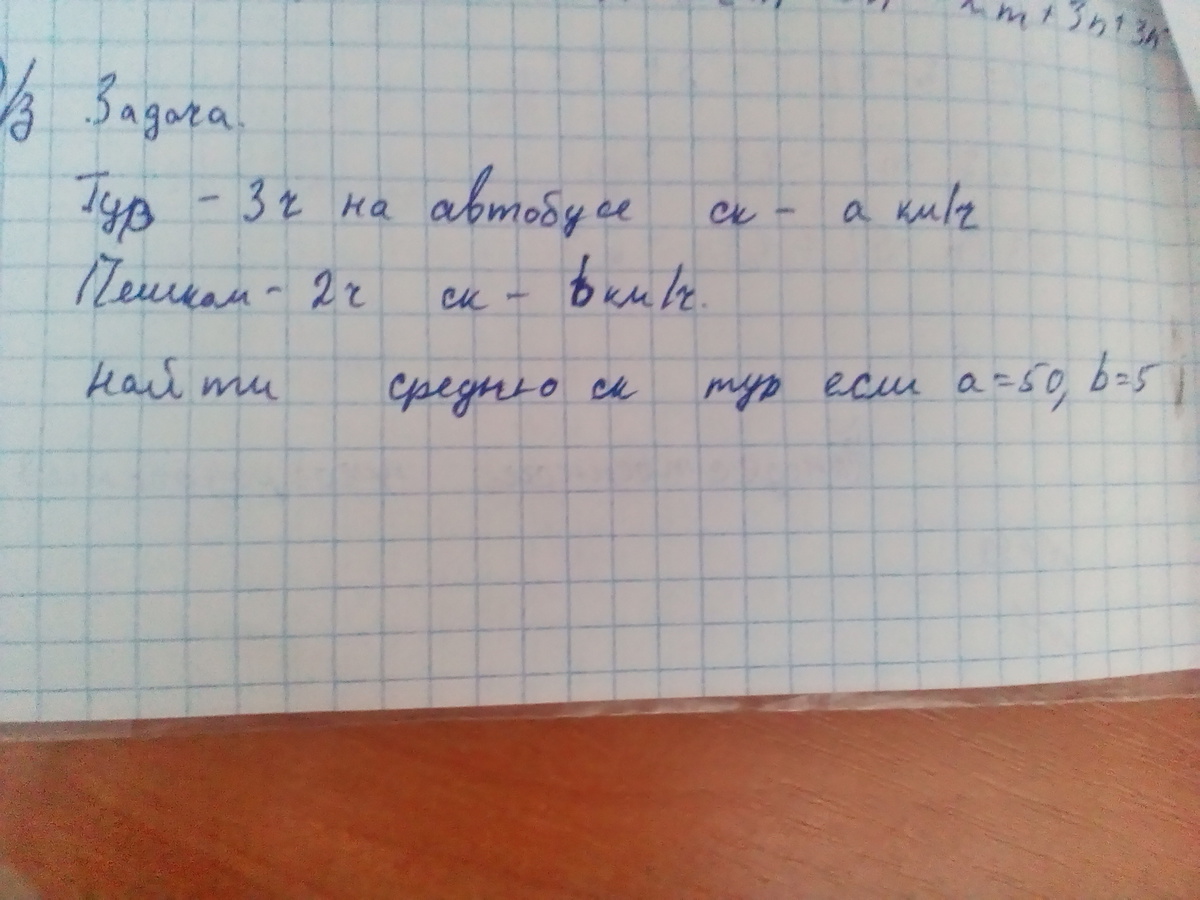 m + 3n + 3n
/з Задача.
Тур - 3 ч на автобусе ск - а км/ч
Пешком - 2 ч ск - b км/ч.
найти среднюю ск тур если a=50, b=5